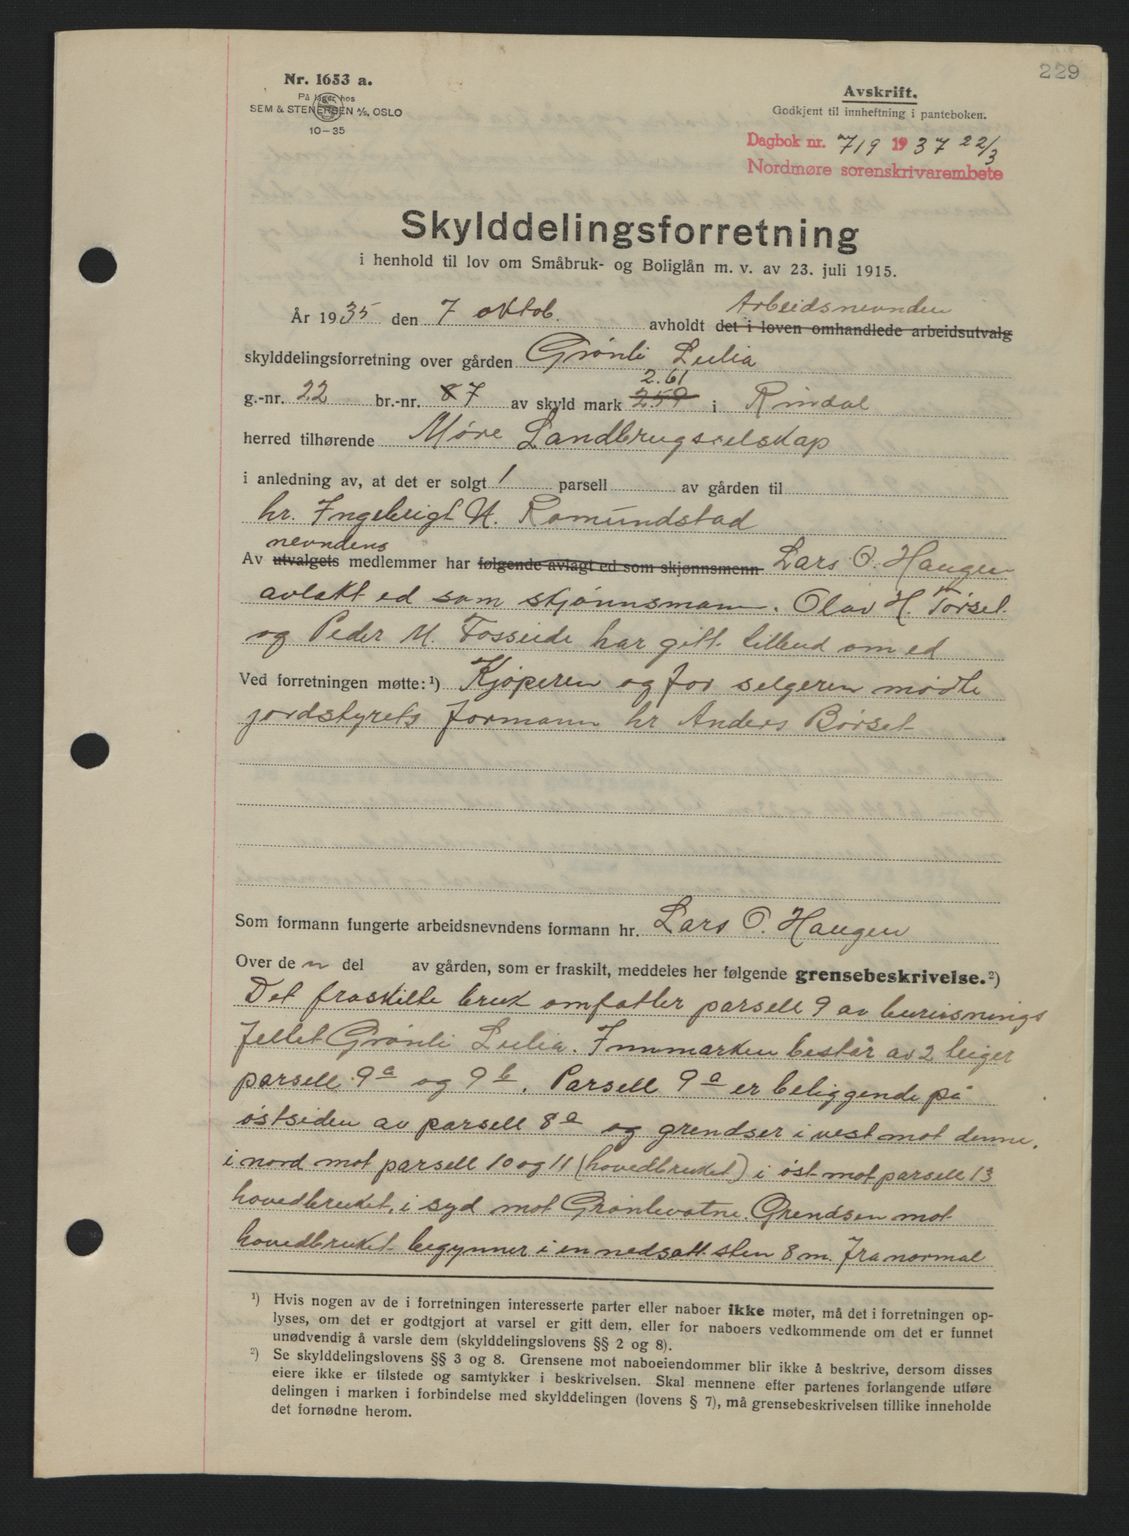 229
Nr. 1653 a.
På lager hos
SEM & STENERSEN A/S, OSLO
10-35
Avskrift.
Godkjent til innheftning i panteboken.
Dagbok nr. 719 1937 22/3
Nordmøre sorenskrivarembete
Skylddelingsforretning
i henhold til lov om Småbruk- og Boliglån m. v. av 23. juli 1915.
Arbeidsnevnden
År 1935 den 7 oktob. avholdt det i loven omhandlede arbeidsutvalg
skylddelingsforretning over gården Grønli Lulia
2.61
g.-nr. 22 br.-nr. 87 av skyld mark 259 i Rindal
herred tilhørende Møre Landbrugsselskap
i anledning av, at det er solgt 1 parsell av gården til
hr. Ingebrigt N. Romundstad
nevndens
Av utvalgets medlemmer har følgende avlagt ed som skjønnsmenn Lars O. Haugen
avlakt ed som skjønnsmann. Olav H. Tørset
og Peder M. Fosseide har gitt tilbud om ed
Ved forretningen møtte: ¹) Kjøperen og for selgeren mødte
jordstyrets formann hr Anders Børset
Som formann fungerte arbeidsnevndens formann hr. Lars O. Haugen
Over de n del av gården, som er fraskilt, meddeles her følgende grensebeskrivelse. ²)
Det fraskilte bruk omfatter parsell 9 av bureisnings
feltet Grønli Lulia. Innmarken består av 2 teiger
parsell 9a og 9b. Parsell 9a er beliggende på
østsiden av parsell 8a og grendser i vest mot denne,
i nord mot parsell 10 og 11 (hovedbruket) i øst mot parsell 13
hovedbruket, i syd mot Grønlivatne. Grendsen mot
hovedbruket begynner i en nedsatt sten 8 m. fra normal
¹) Hvis nogen av de i forretningen interesserte parter eller naboer ikke møter, må det i forretningen op-
lyses, om det er godtgjort at varsel er gitt dem, eller for naboers vedkommende om det er funnet
unødvendig å varsle dem (skylddelingslovens §§ 2 og 8).
²) Se skylddelingslovens §§ 3 og 8. Grensene mot naboeiendommer blir ikke å beskrive, dersom disses
eiere ikke er tilstede og samtykker i beskrivelsen. Skal mennene efter partenes forlangende utføre
delingen i marken i forbindelse med skylddelingen (lovens § 7), må grensebeskrivelsen tillike inneholde
det fornødne herom.